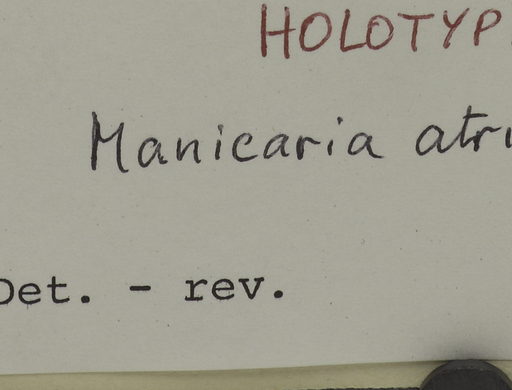 HOLOTYP
Manicaria atri
Det. - rev.